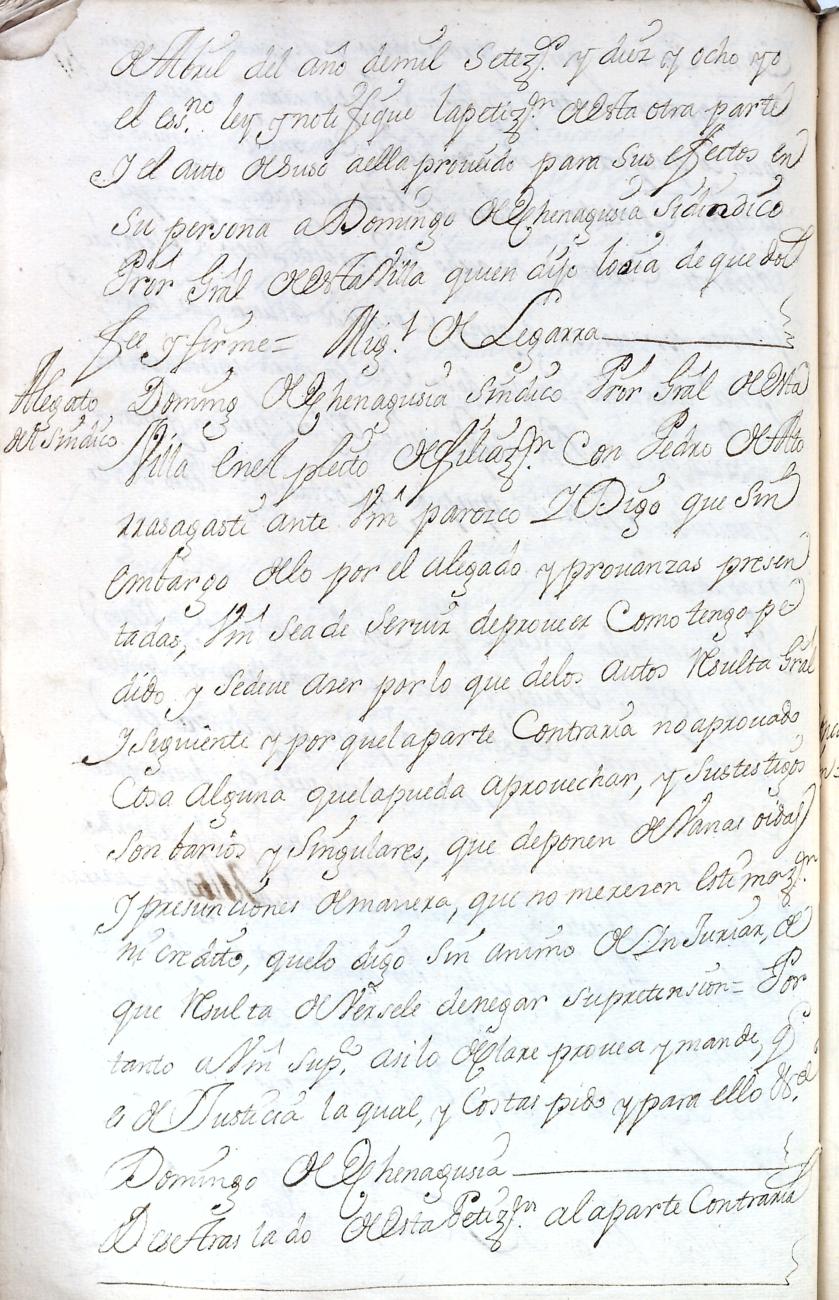 de Abril del año demil Setezs. y diez y ocho yo
el essno. ley y notifique lapetizn. desta otra parte
y el auto desuso aella proueido para sus efectos en
su persona a Domingo de Echenagusia Sindico
Pror Gral desta Villa quien dijo looia de que doi
fee y firme = Migl. de Legarra
Alegato
del Sindico.
Doming de Echenagusia Sindico Pror Gral desta
Villa enel pleito defiliazn. Con Pedro de Alto
rrasagasti ante Vm parezco Y Digo que sin
embargo delo por el alegado y prouanzas presen
tadas, Vm sea de seruir deproueer Como tengo pe
dido y sedeue azer por lo que delos autos Resulta Gral
y siguiente y por quelaparte Contraria no aprouado
Cosa alguna quelapueda aprouechar, y sustestigos
son barios y singulares, que deponen de Vanas oidas
y presunciones demanera, que no merezen estimazn
ni credito, quelo digo sin animo de Injuriar, de
que Resulta deVersele denegar supretension = Por
tanto a Vm supco. asilo declare prouea y mande, q
es de Justicia la qual, y Costas pido y para ello &a.
Domingo de Echenagusia
Dese traslado desta Petizn. alaparte Contraria